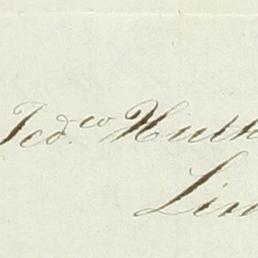 Fed.co Huth
Lim